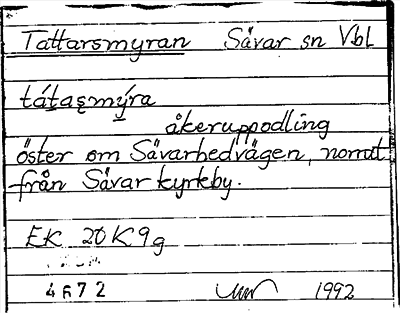 Tattarsmyran Sävar sn Vbl
tátaşmýra
åkeruppodling
öster om Sävarhedvägen, norrut
från Sävar kyrkby.
EK 20K9g
4672 1992